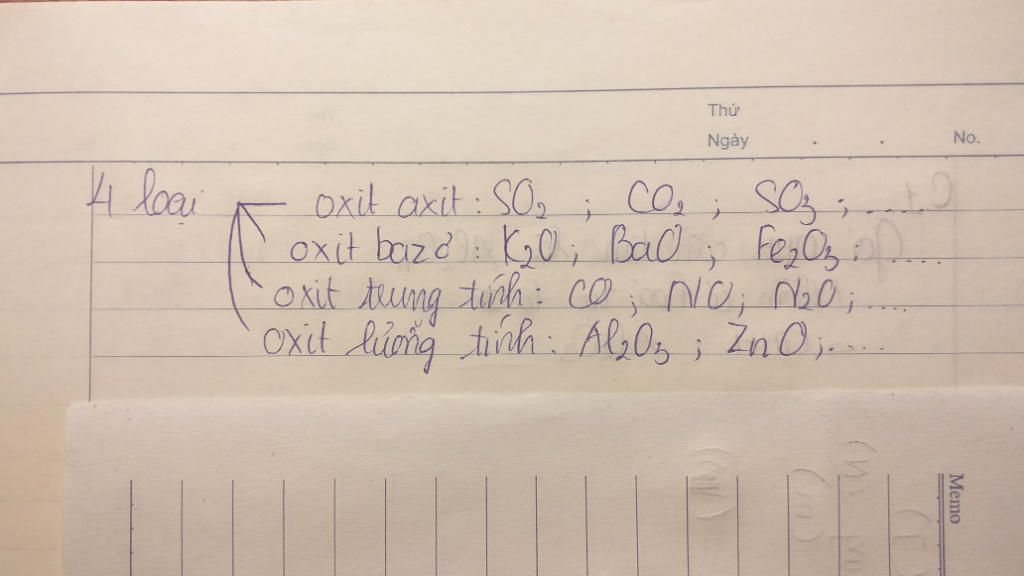 Thứ
Ngày . . No.
4 loại oxit axit : SO₂ ; CO₂ ; SO₃ ; .....
oxit bazơ : K₂O ; BaO ; Fe₂O₃ ; ....
oxit trung tính : CO ; NO ; N₂O ; ....
oxit lưỡng tính : Al₂O₃ ; ZnO ; ....
Memo